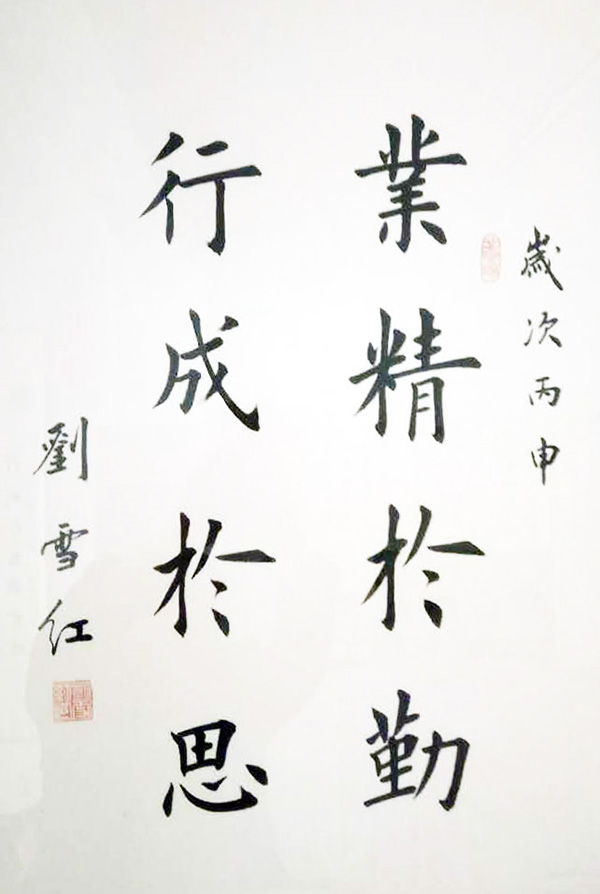 歲次丙申
業精於勤
行成於思
劉雪红